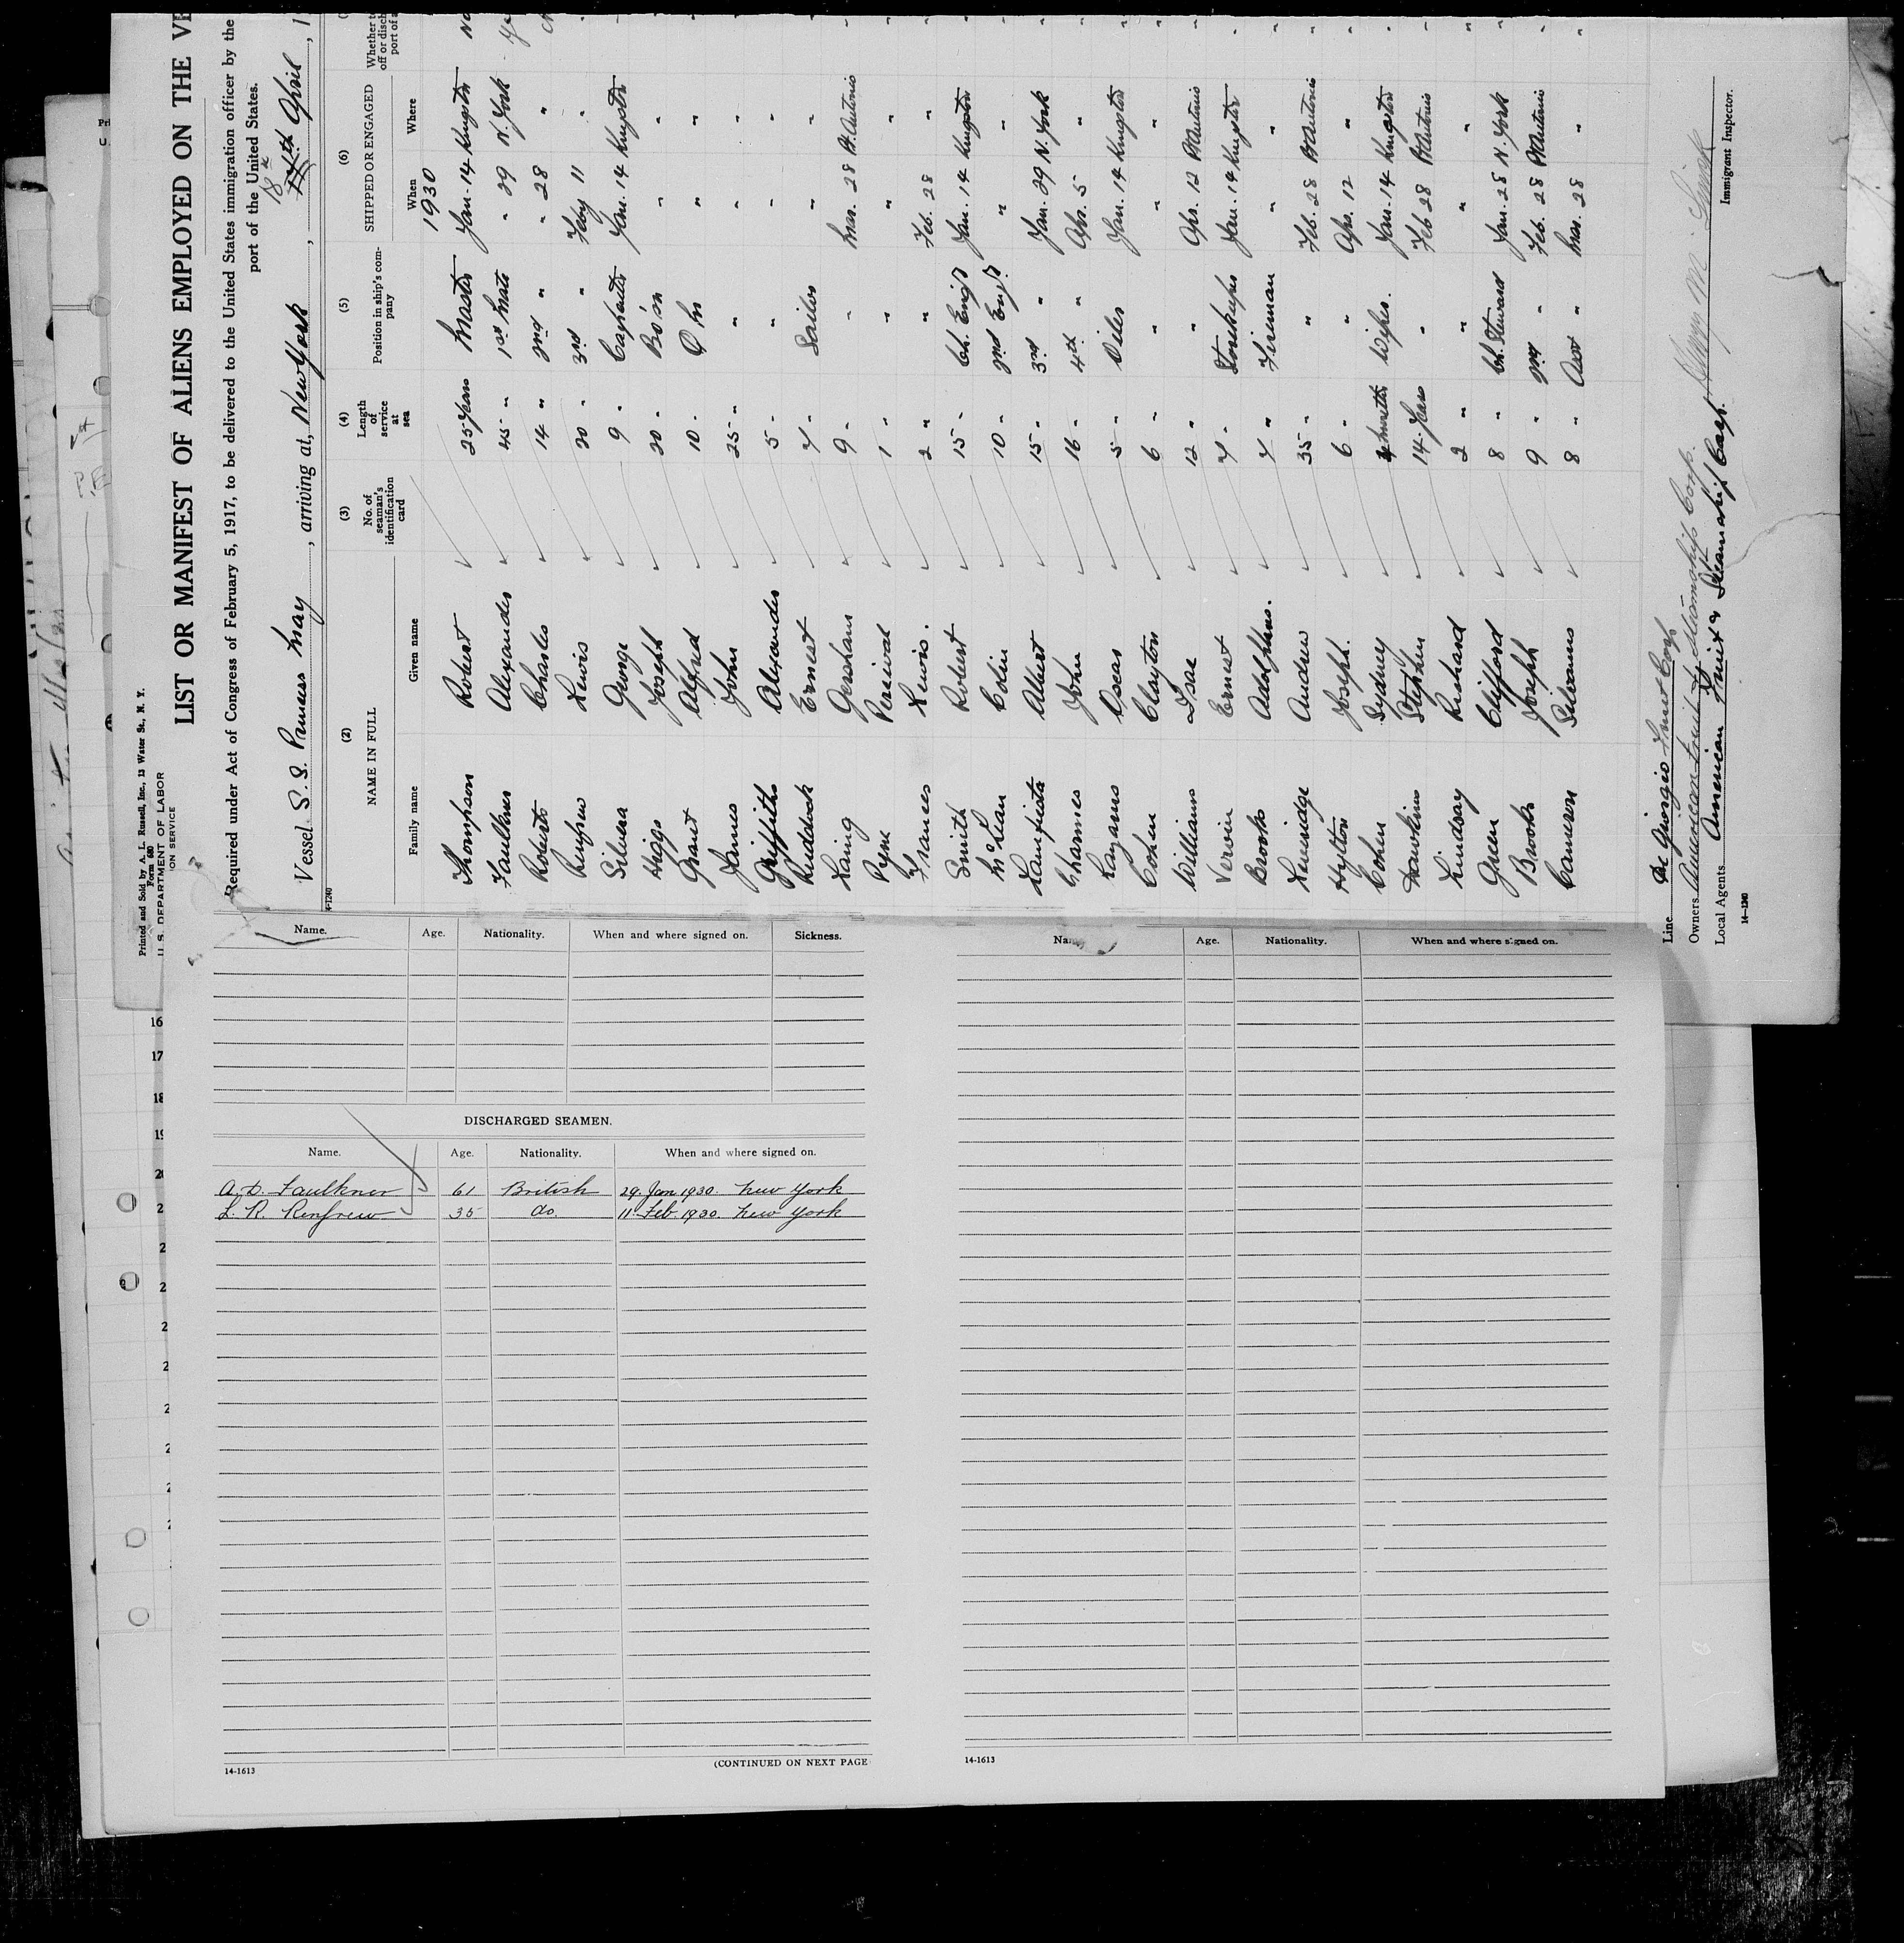 Printed and Sold by A. L. Russell, Inc., 13 Water St., N. Y.
Form 680
U.S. DEPARTMENT OF LABOR
ON SERVICE
LIST OR MANIFEST OF ALIENS EMPLOYED ON THE VE
Required under Act of Congress of February 5, 1917, to be delivered to the United States immigration officer by the
port of the United States.
18th
Vessel S.S. Princess May, arriving at, New York, 17th April, 1
14-1240
(2) (3) (4) (5) (6)
NAME IN FULL No. of seaman's identification card Length of service at sea Position in ship's company SHIPPED OR ENGAGED Whether to
Family name Given name When Where
1930
Thompson Robert 25 years Master Jan. 14 Kingston
Faulkner Alexander 45 " 1st Mate " 29 N. York
Roberts Charles 14 " 2nd " " 28 "
Renfrew Lewis 20 " 3rd " Feby 11 "
Silvera George 9 " Carpenter Jan. 14 Kingston
Higgs Joseph 20 " Bo's'n " "
Grant Alfred 10 " " "
James John 25 " " " "
Griffiths Alexander 5 " " " "
Ruddock Ernest 7 " Sailor " "
Laing Gersham 9 " " Mar. 28 Pt Antonio
Pyne Percival 1 " " " "
Frances Lewis. 2 " " Feb. 28 "
Smith Robert 15 " Ch. Eng'r Jan. 14 Kingston
McLean Colin 10 " 2nd Eng'r. " "
Albert 15 " 3rd " Jan. 29 N. York
John 16 " 4th " Apr. 5 "
Oscar 5 " Oiler Jan. 14 Kingston
Cohen Clayton 6 " " " "
Williams Isaac 12 " " Apr. 12 Pt Antonio
Vervin Ernest 7 " Storekeeper Jan. 14 Kingston
Brooks Adolphus. 7 " Fireman " "
Leveridge Andrew 35 " " Feb. 28 Pt Antonio
Hylton Joseph. 6 " " Apr. 12 "
Cohen Sydney months Wiper. Jan. 14 Kingston
Hawkins Stephen 14 years " Feb 28 Pt Antonio
Lindsay Richard 2 " " " "
Green Clifford 8 " Ch. Steward Jan. 28 N. York
Brooks Joseph 9 " 2nd " Feb. 28 Pt Antonio
Cameron Silvanus 8 " Asst " Mar. 28 "
Line Di Giorgio Fruit Corp.
Owners American Fruit & Steamship Corp.
Local Agents American Fruit & Steamship Corp.
Immigrant Inspector.
14-1240
Name. Age. Nationality. When and where signed on. Sickness.
DISCHARGED SEAMEN.
Name. Age. Nationality. When and where signed on.
A. D. Faulkner 61 British 29. Jan 1930. New York
L. R. Renfrew 35 do. 11. Feb. 1930. New York
14-1613
(CONTINUED ON NEXT PAGE
Age. Nationality. When and where signed on.
14-1613
16
17
18